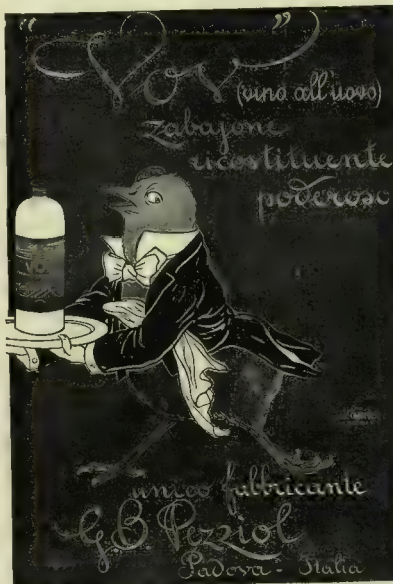 "Vov"
(vino all'uovo)
zabajone
ricostituente
poderoso
unico fabbricante
G. B. Pezziol
Padova - Italia